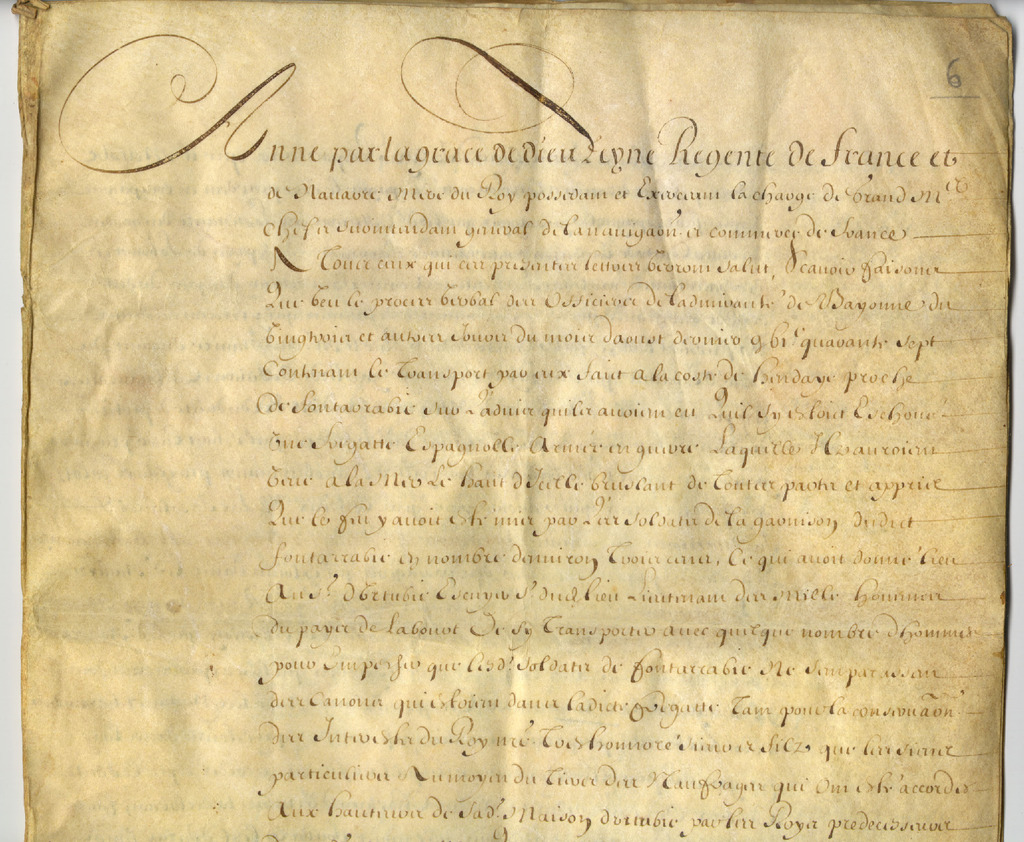 6
Anne par la grace de Dieu Reyne Regente de France et
de Navarre Mere du Roy possedant et Exercant la charge de Grand Mᵉʳᵉ
Chef et Surintendant general de la navigaõn et commerce de France
A Tous ceux qui ces presentes lettres verront salut, Scavoir faisons
Que veu le procez verbal des Officiers de l'admirauté de Bayonne du
vingtrois et autres jours du mois daoust dernier gbiᶜ quarante sept
Contenant le Transport par eux faict a la coste de hendaye proche
de fontarabie sur l'advis quils avoient eu Quil sy estoict Eschoué
Une fregatte Espagnolle Armée en guerre Laquelle Ilz auroient
veue a la Mer Le hault d'Icelle bruslant de toutes parts et appris
Que le feu y avoit esté mis par Les soldats de la garnison dudict
fontarrabie en nombre denviron Trois cens, Ce qui avoit donné lieu
Au Sʳ D'Urtubie Escuyer Sʳ dudᵗ lieu Lieutenant des Mille hommes
du payes de Labourt De sy transporter avec quelque nombre dhommes
pour Empescher que lesdᵗˢ soldats de fontarrabie Ne semparassent
des Canons qui estoient dans ladicte fregatte Tant pour la conservaõn
des Interestz du Roy nrẽ Tres honnoré sieur et filz que les siens
particulliers Au moyen du Tiers des Naufrages qui ont esté accordés
Aux hauteurs de sadᵗᵉ Maison durtubie par les Roys predecesseurs